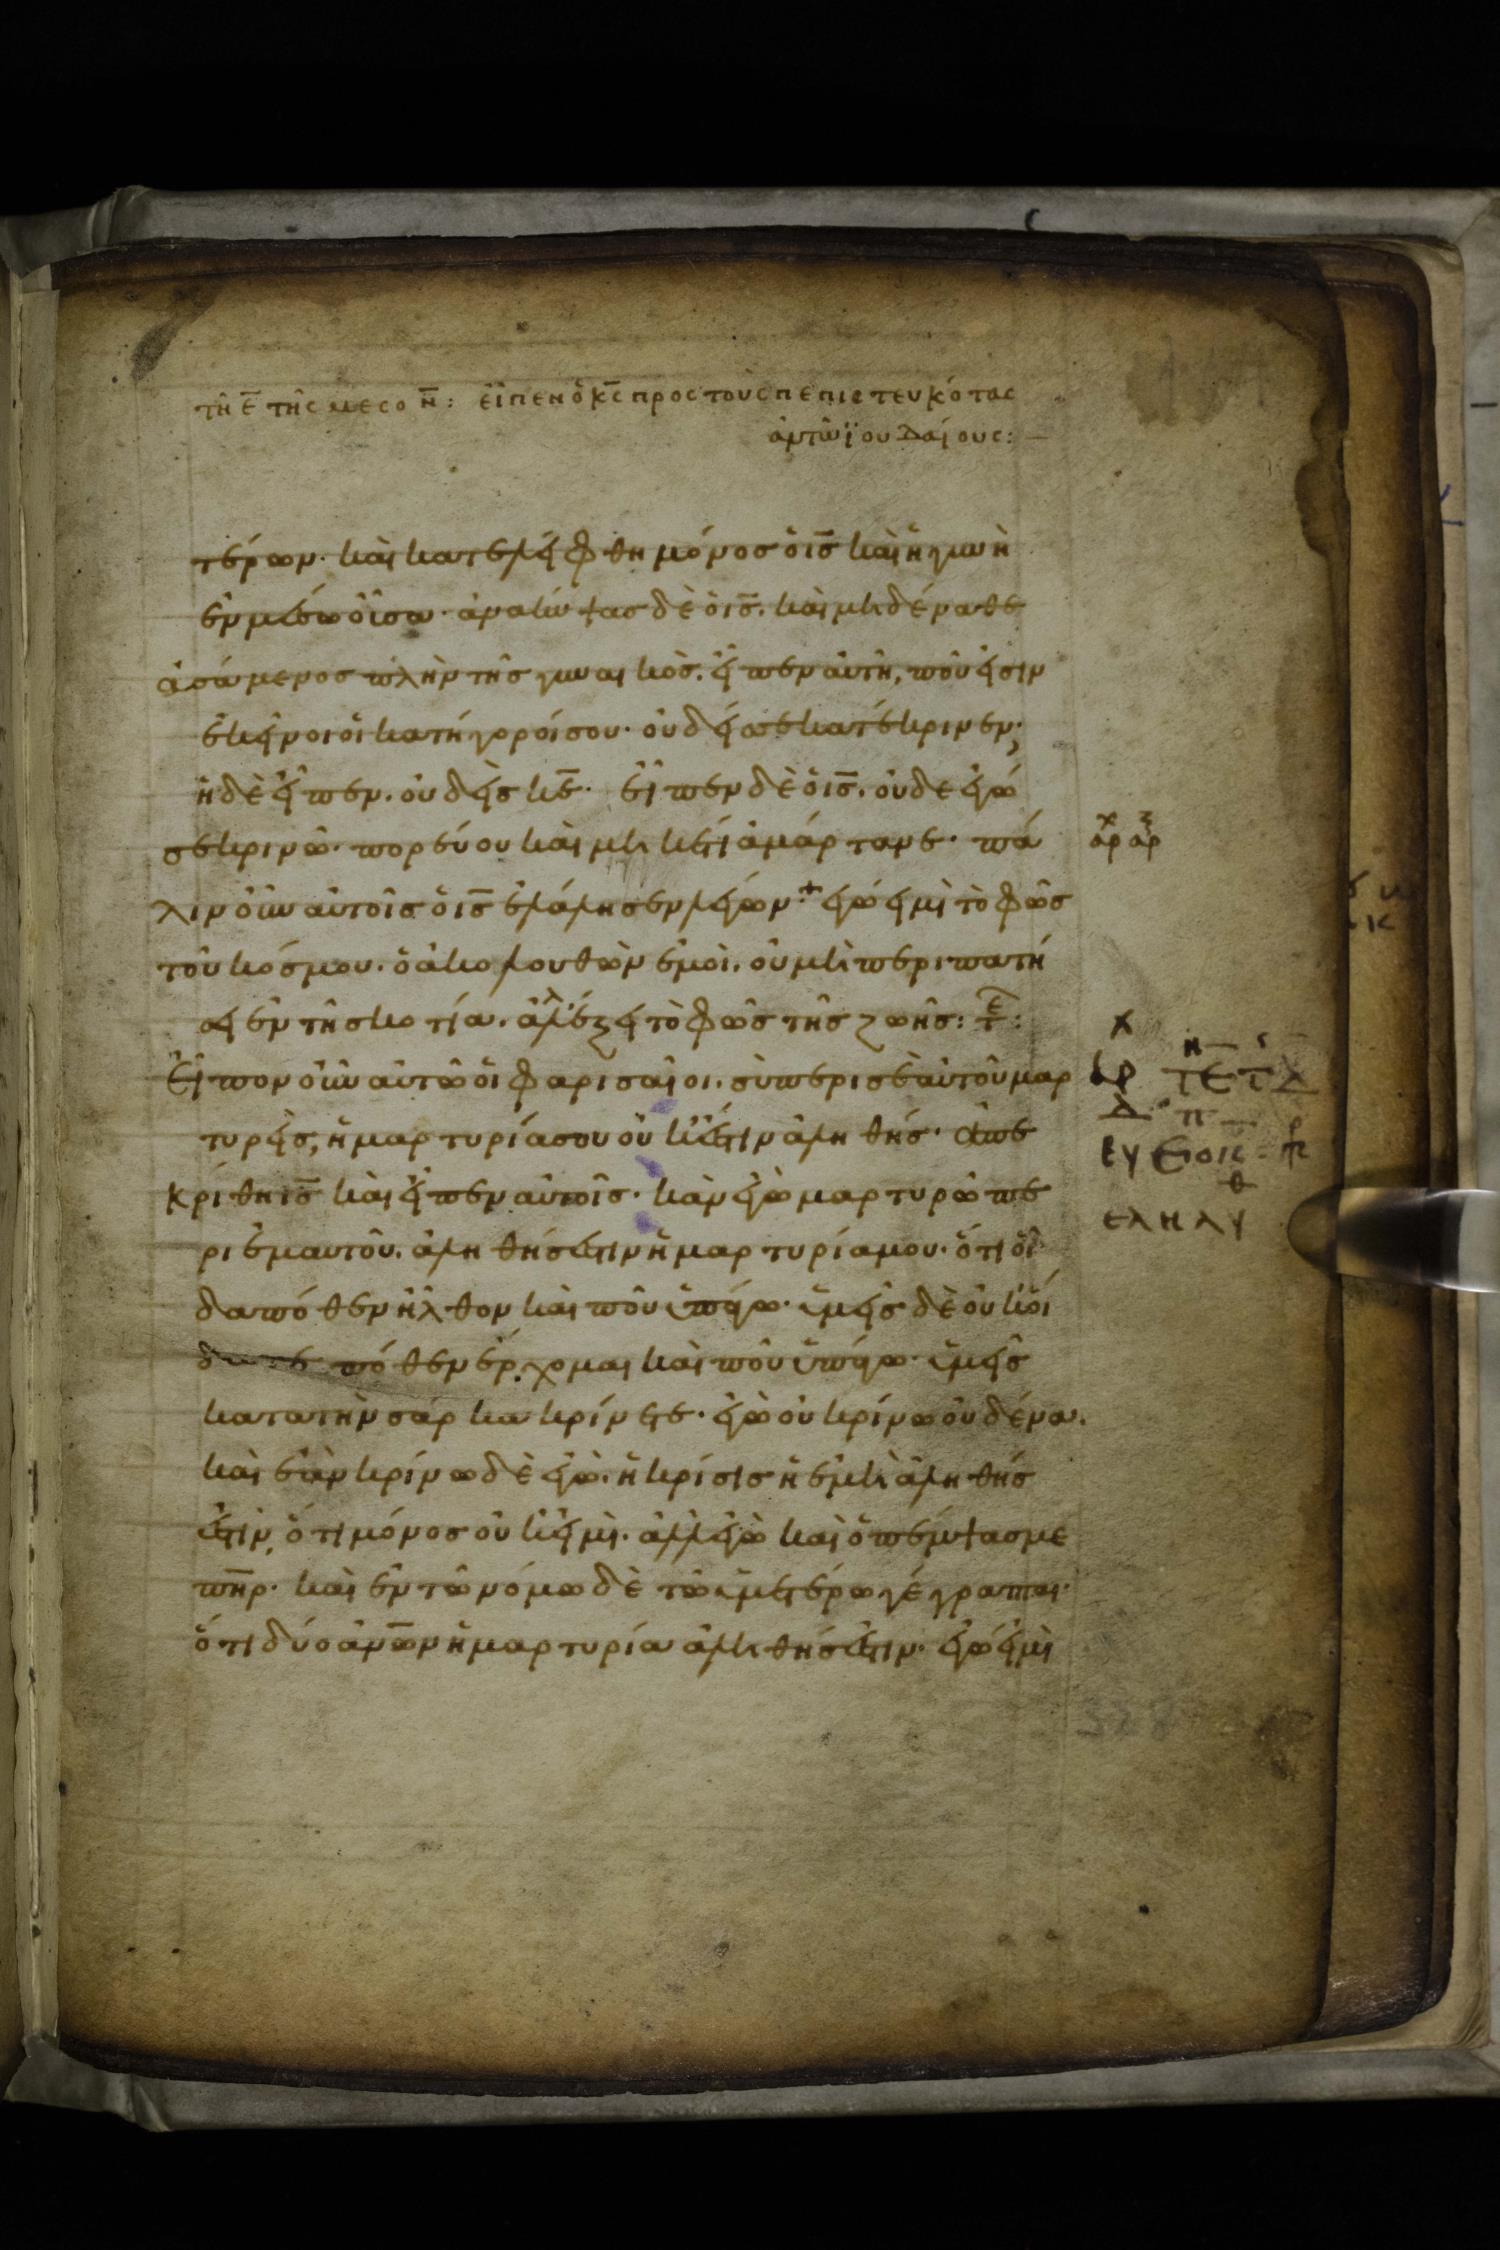 τῆ ε̅ τῆς μεσο ν̅: εἶπεν ὁ κ̅ς̅ προς τοὺς πεπιστευκότας
αὐτῶ ϊουδαίους:
τέρων· καὶ κατελήφθη μόνος ὁ ι̅ς̅ καὶ ἡ γυνὴ
ἐν μέσω οὖσα· ἀνακύψας δὲ ὁ ι̅ς̅. καὶ μὴ δένα θε
ἀσάμενος πλὴν τῆς γυναικὸς. εἶπεν αὐτῆ, ποῦ εἰσιν
ἐκεῖνοι οἱ κατήγοροί σου· οὐδείς σε κατέκρινεν;
ἡ δὲ εἶπεν. οὐδεὶς κ̅ε̅· εἶπεν δὲ ὁ ι̅ς̅. οὐδε ἐγώ
σε κρινῶ· πορεύου καὶ μὴ κέτι ἁμάρτανε· πά
λιν οὖν αὐτοῖς ὁ ι̅ς̅ ἐλάλησεν λέγων· ἐγώ εἰμὶ τὸ φῶς
τοῦ κόσμου. ὁ ἀκολουθῶν ἐμοὶ. οὐ μὴ περιπατή
σει ἐν τῆ σκοτία. ἀλλ' ἕξει τὸ φῶς τῆς ζωῆς: τε:
Εἶπον οὖν αὐτῶ οἱ φαρισαῖοι. σὺ περὶ σεαὐτοῦ μαρ
τυρεῖς, ἡ μαρτυρία σου οὐκ ἔστιν ἀληθής· ἀπε
κρίθη ι̅ς̅ καὶ εἶπεν αὐτοῖς· κἀν ἐγὼ μαρτυρῶ πε
ρι ἐμαυτοῦ. ἀληθής ἐστιν ἡ μαρτυρία μου· ὅτι οἶ
δα πόθεν ἦλθον καὶ ποῦ ὑπάγω· ὑμεῖς δὲ οὐκ οἴ
πόθεν ἔρχομαι καὶ ποῦ ὑπάγω· ὑμεῖς
κατα τὴν σάρκα κρίνετε· ἐγὼ οὐ κρίνω οὐδένα.
καὶ ἐὰν κρίνω δὲ ἐγὼ. ἡ κρίσις ἡ ἐμὴ ἀληθής
ἐστὶν, ὅτι μόνος οὐκ εἰμὶ. ἀλλ ἐγὼ καὶ ὁ πέμψας με
π̅η̅ρ̅· καὶ ἐν τῶ νόμω δὲ τῶ ὑμετέρω γέγραπται·
ὅτι δύο ἀν̅ω̅ν ἡ μαρτυρία ἀληθής ἐστιν· ἐγώ εἰμὶ